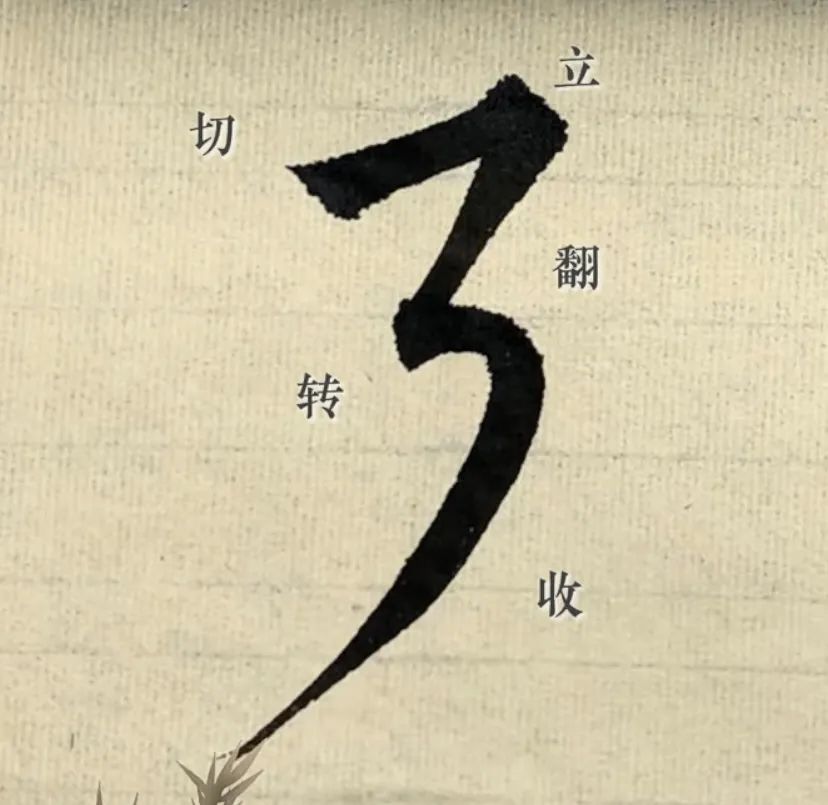 立
切
翻
转
收